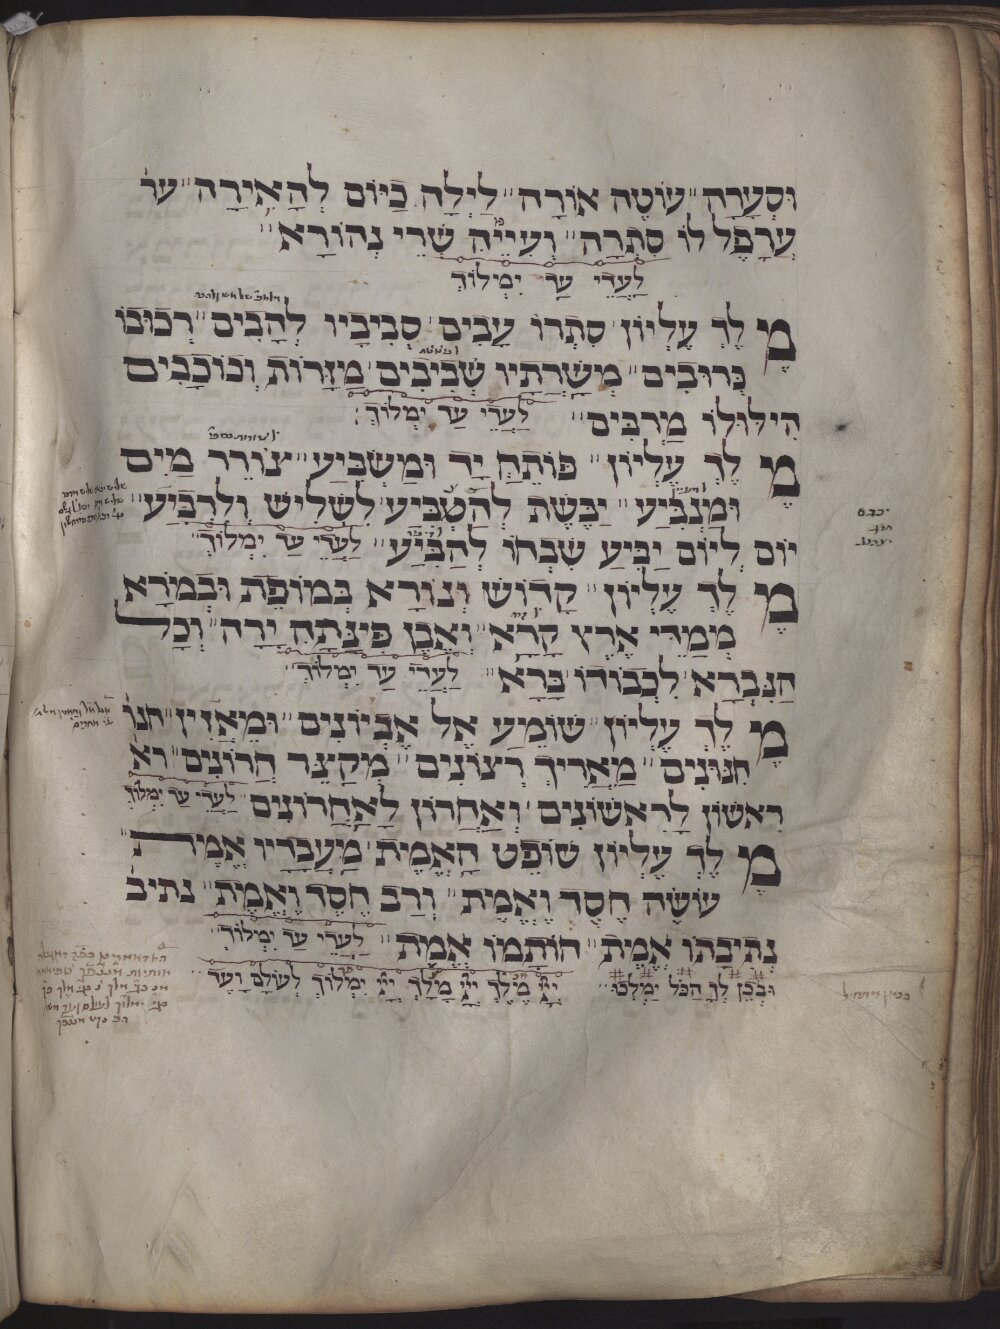 וּסְעָרָה״ עוֹטֶה אוֹרָה״ לַיְלָה כַּיּוֹם לְהָאִירָה״ ער
עֲרָפֶל לוֹ סִתְרָה״ וְעִימֵּיהּ שָׁרֵי נְהוֹרָא״
לַעֲדֵי עַד יִמְלוֹךְ
מֶלֶךְ עֶלְיוֹן סִתְרוֹ עָבִים סְבִיבָיו לְהָבִים״ רְכוּבוֹ
כְּרוּבִים״ מְשָׁרְתָיו שְׁבִיבִים מַזָּרוֹת וְכוֹכָבִים
הִילּוּלוֹ מַרְבִּים״ לַעֲדֵי עַד יִמְלוֹךְ:
מֶלֶךְ עֶלְיוֹן״ פּוֹתֵחַ יָד וּמַשְׂבִּיעַ״ צוֹרֵר מַיִם
וּמַנְבִּיעַ״ יַבֶּשֶׁת לְהַטְבִּיעַ לִשְׁלִישׁ וְלִרְבִיעַ״
יוֹם לְיוֹם יַבִּיעַ שִׁבְחוֹ לְהַבִּיעַ״ לַעֲדֵי עַד יִמְלוֹךְ
מֶלֶךְ עֶלְיוֹן״ קָדוֹשׁ וְנוֹרָא בְּמוֹפֵת וּבְמוֹרָא
מְמַדֵּי אֶרֶץ קָרָא״ וְאֶבֶן פִּינָּתָהּ יָרָה״ וְכָל
הַנִּבְרָא לִכְבוֹדוֹ בָּרָא״ לַעֲדֵי עַד יִמְלוֹךְ״
מֶלֶךְ עֶלְיוֹן״ שׁוֹמֵעַ אֶל אֶבְיוֹנִים״ וּמַאֲזִין״ חנו
חִנּוּנִים״ מַאֲרִיךְ רְצוֹנִים״ מְקַצֵּר חֲרוֹנִים״ רא
רִאשׁוֹן לָרִאשׁוֹנִים וְאַחֲרוֹן לָאַחֲרוֹנִים״ לַעֲדֵי עַד יִמְלוֹךְ
מֶלֶךְ עֶלְיוֹן שׁוֹפֵט הָאֱמֶת מַעֲבָדָיו אֱמֶת״
עוֹשֶׂה חֶסֶד וֶאֱמֶת״ וְרַב חֶסֶד וֶאֱמֶת״ נתיב
נְתִיבָתוֹ אֱמֶת״ חוֹתָמוֹ אֱמֶת״ לַעֲדֵי עַד יִמְלוֹךְ״
וּבְכֵן לְךָ הַכֹּל יַמְלִכוּ״ יְיָ מֶלֶךְ יְיָ מָלָךְ יְיָ יִמְלוֹךְ לְעוֹלָם וָעֶד״